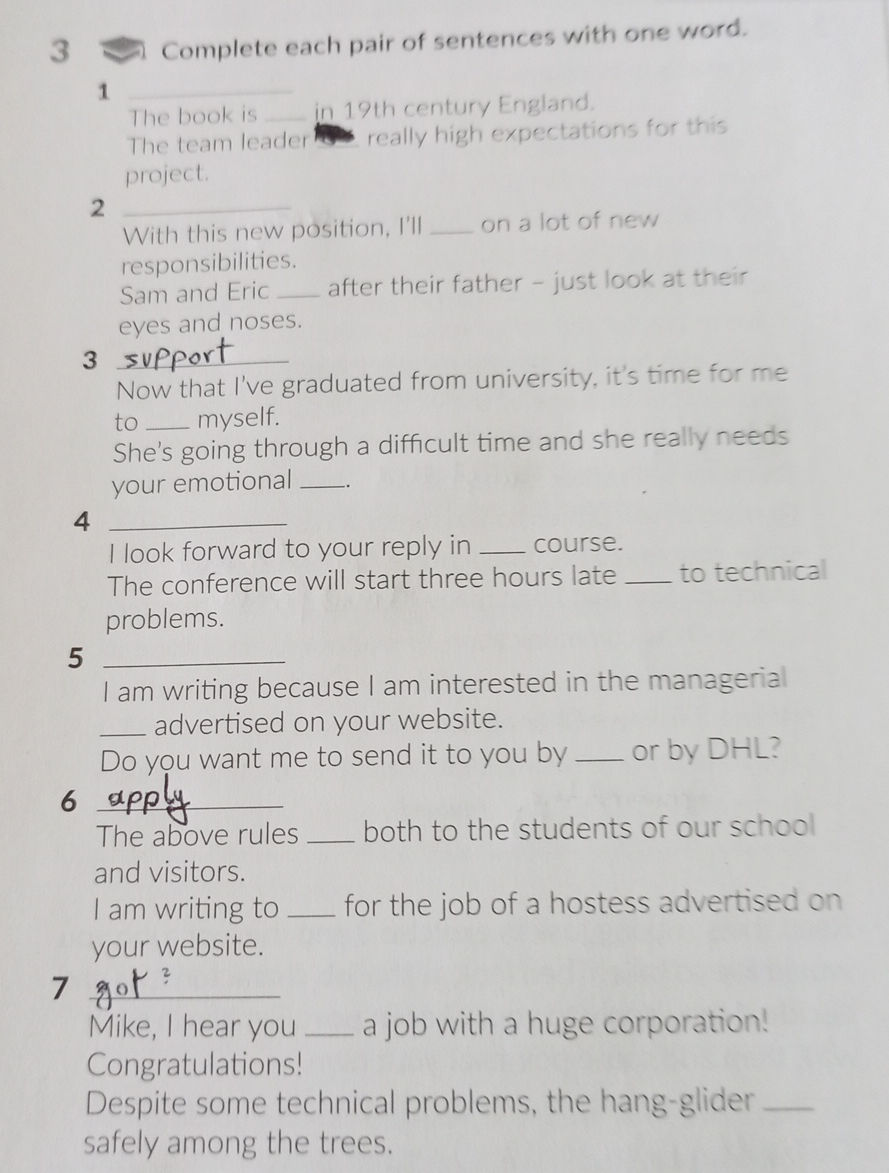 3 Complete each pair of sentences with one word.
1 ____
The book is ____ in 19th century England.
The team leader ____ really high expectations for this
project.
2 ____
With this new position, I'll ____ on a lot of new
responsibilities.
Sam and Eric ____ after their father – just look at their
eyes and noses.
3 support
Now that I've graduated from university, it's time for me
to ____ myself.
She's going through a difficult time and she really needs
your emotional ____.
4 ____
I look forward to your reply in ____ course.
The conference will start three hours late ____ to technical
problems.
5 ____
I am writing because I am interested in the managerial
____ advertised on your website.
Do you want me to send it to you by ____ or by DHL?
6 apply
The above rules ____ both to the students of our school
and visitors.
I am writing to ____ for the job of a hostess advertised on
your website.
7 got ?
Mike, I hear you ____ a job with a huge corporation!
Congratulations!
Despite some technical problems, the hang-glider ____
safely among the trees.